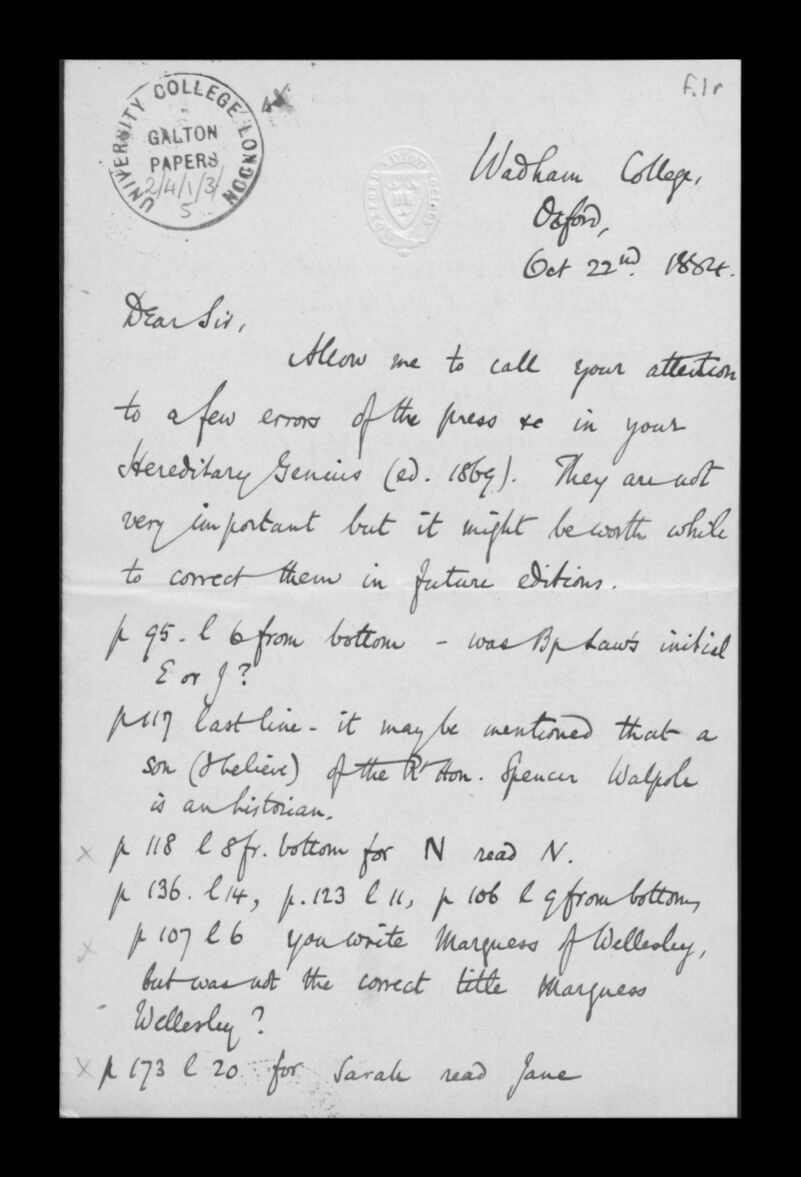 F.1r
UNIVERSITY COLLEGE LONDON
GALTON
PAPERS
2/4/1/3/
5
Wadham College,
Oxford,
Oct 22nd. 1884.
Dear Sir,
Allow me to call your attention
to a few errors of the press &c in your
Hereditary Genius (ed. 1869). They are not
very important but it might be worth while
to correct them in future editions.
p 95. l 6 from bottom - was Bp Law's initial
E or J?
p 117 last line - it may be mentioned that a
son (I believe) of the Rt Hon. Spencer Walpole
is an historian.
x p 118 l 8 fr. bottom for N read N.
p 136. l 14, p. 123 l 11, p 106 l 9 from bottom,
x p 107 l 6 you write Marquess of Wellesley,
but was not the correct title Marquess
Wellesley?
x p 173 l 20 for Sarah read Jane